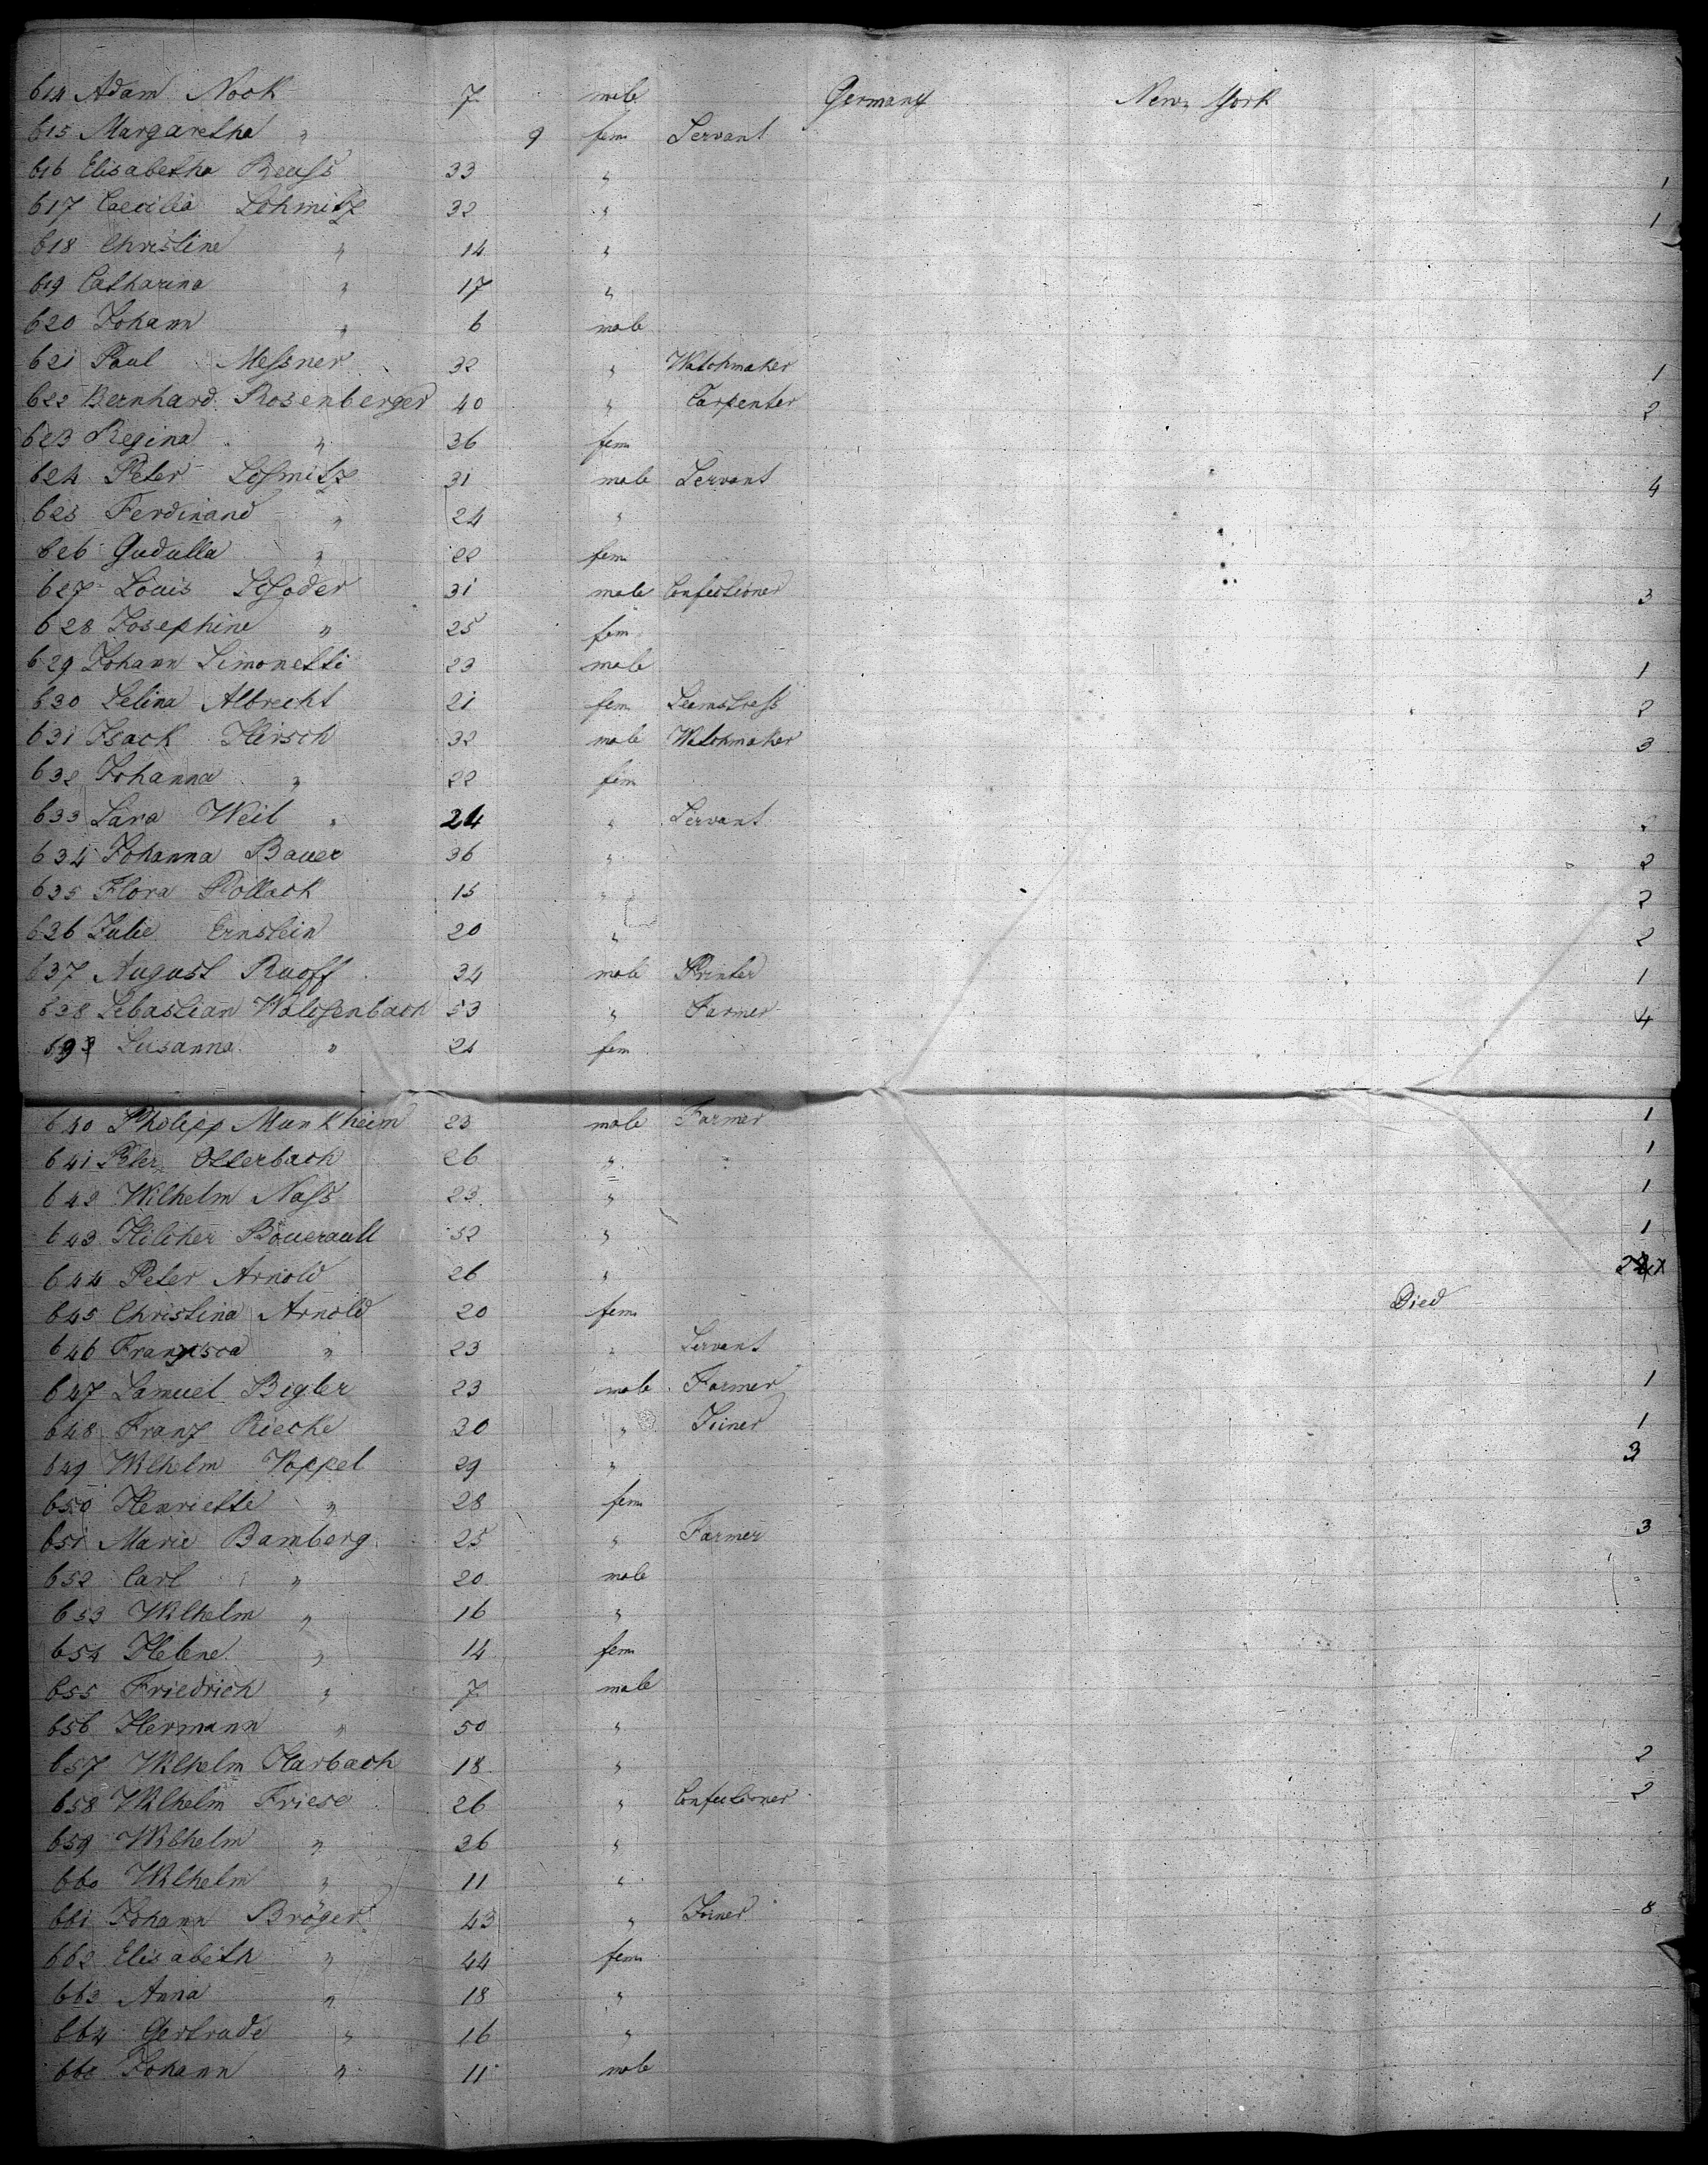 614 Adam Nook 7 male Germany New York
615 Margaretha " 9 fem Servant
616 Elisabetha Reuss 33 " 1
617 Caecilia Schmitz 32 " 1
618 Christine " 14 "
619 Catharina " 17 "
620 Johann " 6 male
621 Paul Messner 32 " Watchmaker 1
622 Bernhard Rosenberger 40 " Carpenter 2
623 Regina " 36 fem
624 Peter Schmitz 31 male Servant 4
625 Ferdinand " 24 "
626 Gudulla " 22 fem
627 Louis Schoder 31 male Confectioner 3
628 Josephine " 25 fem
629 Johann Simonetti 23 male 1
630 Selina Albrecht 21 fem Seamstress 2
631 Isack Hirsch 32 male Watchmaker 3
632 Johanna " 22 fem
633 Sara Weil " 24 " Servant
634 Johanna Bauer 36 " 2
635 Flora Pollack 15 " 2
636 Julie Ernstein 20 " 2
637 August Ruoff 34 male Printer 1
638 Sebastian Walchenbach 53 " Farmer 4
639 Susanna " 21 fem
640 Philipp Munkheim 23 male Farmer 1
641 Peter Otterbach 26 " 1
642 Wilhelm Nass 23 " 1
643 Bouerault 52 " 1
644 Peter Arnold 26 "
645 Christina Arnold 20 fem Died
646 Franzisca " 23 " Servant
647 Samuel Bigler 23 male Farmer 1
648 Franz Riecke 30 " Joiner 1
649 Wilhelm Voppel 29 " 3
650 Henriette " 28 fem
651 Marie Bamberg 25 " Farmer 3
652 Carl " 20 male
653 Wilhelm " 16 "
654 Helene " 14 fem
655 Friedrich " 7 male
656 Hermann " 50 "
657 Wilhelm Harbach 18 " 2
658 Wilhelm Friese 26 " Confectioner 2
659 Wilhelm " 36 "
660 Wilhelm " 11 "
661 Johann Bröger 43 " Joiner 8
662 Elisabeth " 44 fem
663 Anna " 18 "
664 Gertrude " 16 "
665 Johann " 11 male